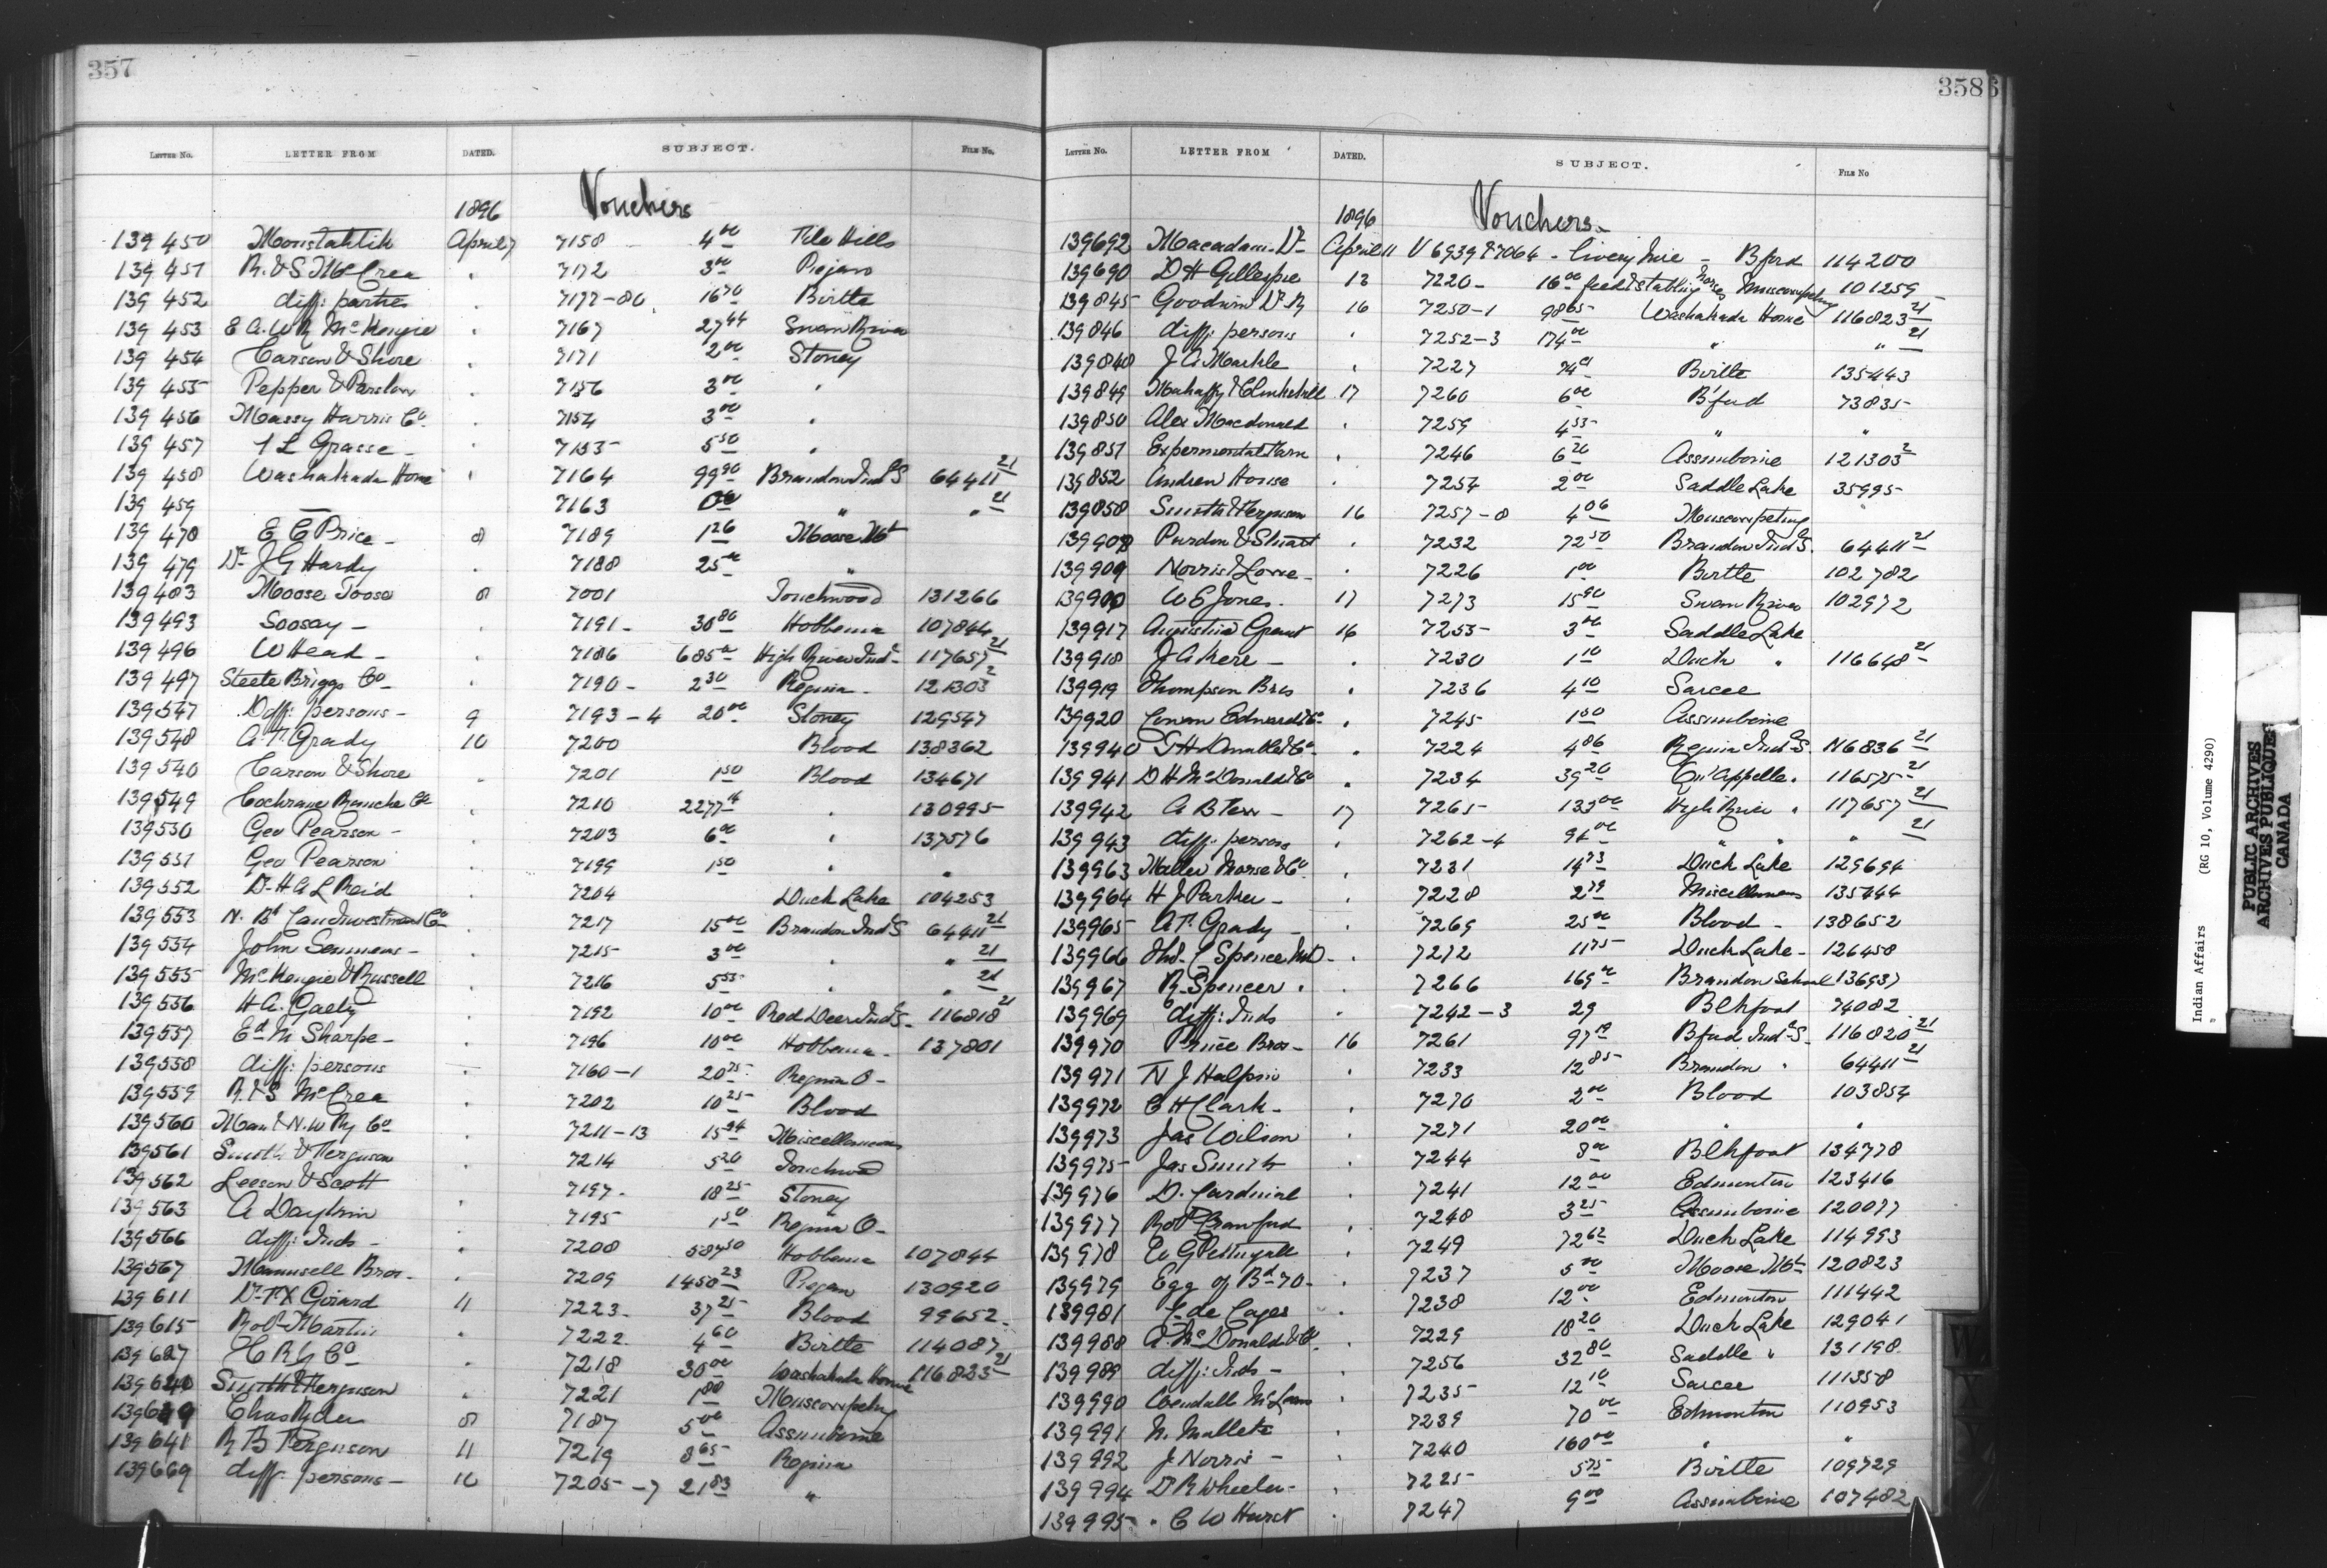 357
LETTER NO. LETTER FROM DATED. SUBJECT. FILE NO.
1896 Vouchers
139450 Moostahtik April 7 7158 4 00 File Hills
139451 R. & S McCrea " 7172 3 00 Piegan
139452 diff: parties " 7177-80 16 70 Birtle
139453 E A. W R McKenzie " 7167 27 44 Swan River
139454 Carson & Shore " 7171 2 00 Stoney
139455 Pepper & Parslow " 7156 3 00 "
139456 Massy Harris Co. " 7154 3 00 "
139457 Grasse " 7153 5 50 "
139458 Washakada Home " 7164 99 90 Brandon Ind S 64411 21
139459 — 7163 " " 21
139478 E C Price 8 7189 1 26 Moose Mt
139479 Dr J G Hardy 7188 25 00 "
139483 Moose Toose 8 7001 Touchwood 131266
139493 Soosay " 7191 30 80 Hobbema 107844
139496 W Head " 7186 685 00 High River Ind 117657 21
139497 Steele Briggs Co " 7190 2 30 Regina 121303 2
139547 Diff: persons 9 7193-4 20 00 Stoney 129547
139548 A. F. Grady 10 7200 Blood 138362
139540 Carson & Shore " 7201 1 50 Blood 134671
139549 Cochrane Ranche Co " 7210 2277 16 " 130995
139530 Geo Pearson " 7203 6 00 " 137576
139551 Geo Pearson 7199 1 50 " "
139552 Dr H A L Reid 7204 Duck Lake 104253
139553 N. Bd Land Investment Co " 7217 15 00 Brandon Ind S 64411 21
139554 John Semmens " 7215 3 00 " " 21
139555 McKenzie & Russell " 7216 5 55 " " 21
139556 H A. Gaetz " 7192 10 00 Red Deer Ind S. 116818 21
139557 Ed. M Sharpe 7196 10 00 Hobbema 137801
139558 diff: persons " 7160-1 20 75 Regina O
139559 R. & S McCrea " 7202 10 25 Blood
139560 Man & N. W Ry Co " 7211-13 15 24 Miscellaneous
139561 Smith & Ferguson " 7214 5 20 Touchwood
139562 Leeson & Scott 7197 18 25 Stoney
139563 A Daykin " 7195 1 50 Regina O
139566 diff: Inds " 7208 587 50 Hobbema 107844
139567 Maunsell Bros. " 7209 1450 23 Piegan 130920
139611 Dr F X Girard 11 7223 37 25 Blood 99652
139615 Robt Martin " 7222 4 60 Birtle 114087
139627 C P Ry Co " 7218 30 00 Washakada Home 116823 21
139640 Smith & Ferguson 7221 1 80 Muscowpetung
139649 Chas Ryder 8 7187 5 00 Assiniboine
139641 R B Ferguson 11 7219 8 65 Regina
139669 diff: persons 10 7205-7 21 83 "
358
LETTER NO. LETTER FROM DATED. SUBJECT. FILE NO
1896 Vouchers
139692 Macadam Dr April 11 V 6939 & 7064 - livery hire - Bford 114200
139690 D H Gillespie 13 7220 16 00 feed & stabling horses Muscowpetung 101259
139845 Goodwin Dr R 16 7250-1 98 65 Washakada Home 116823 21
139846 diff: persons " 7252-3 174 00 " " 21
139840 J A Markle " 7227 Birtle 135443
139849 Mahaffy & Clinkskill 17 7260 6 00 B'ford 73835
139850 Alex Macdonald " 7259 4 55 " "
139851 Expermental Farm " 7246 6 20 Assiniboine 121303 2
139852 Andrew House " 7254 2 00 Saddle Lake 35995
139858 Smith & Ferguson 16 7257-8 4 06 Muscowpetung "
139908 Purdon & Stuart " 7232 72 50 Brandon Ind S. 64411 21
139909 Norris & Lowe " 7226 1 00 Birtle 102782
139900 W E Jones. 17 7273 15 90 Swan River 102972
139917 Augustine Grant 16 7255 3 00 Saddle Lake
139918 J A Kere " 7230 1 10 Duck " 116648 21
139919 Thompson Bros " 7236 4 10 Sarcee
139920 Cowan Edwards & Co " 7245 1 50 Assiniboine
139940 & Co " 7224 4 86 Regina Ind S. 116836 21
139941 D H McDonald & Co " 7234 39 20 Qu'Appelle 116575 21
139942 A B 17 7265 133 00 High River " 117657 21
139943 diff: persons " 7262-4 " " " 21
139963 Morse & Co " 7231 14 73 Duck Lake 129694
139964 H J Parker " 7228 2 79 Miscellaneous 135444
139965 A F. Grady 7269 25 00 Blood 138652
139966 Spence " 7272 11 75 Duck Lake 126458
139967 R. Spencer " 7266 169 00 Brandon School 136937
139969 diff: Inds " 7242-3 29 Blkfoot 74082
139970 Prince Bros 16 7261 97 19 Bford Ind S. 116820 21
139971 N J Halpin " 7233 12 85 Brandon " 64411 21
139972 C H Clark " 7270 2 00 Blood 103854
139973 Jas Wilson " 7271 20 00 " "
139975 Jas Smith " 7244 8 00 Blkfoot 134778
139976 D. Cardinal " 7241 12 00 Edmonton 123416
139977 Robt Crawford " 7248 3 25 Assiniboine 120077
139978 W G Pettingell " 7249 72 62 Duck Lake 114993
139979 Egg of Bd 70 " 7237 5 00 Moose Mt 120823
139981 L de Cazes " 7238 12 00 Edmonton 111442
139988 A McDonald & Co " 7229 18 20 Duck Lake 129041
139989 diff: Inds " 7256 32 80 Saddle " 131198
139990 Wendall McLean " 7235 12 10 Sarcee 111358
139991 N. Mallette 7239 70 00 Edmonton 110953
139992 J Norris " 7240 160 00 " "
139994 Dr R Wheeler " 7225 5 75 Birtle 109729
139995 C W Hurst " 7247 9 00 Assiniboine 107482
Indian Affairs (RG 10, Volume 4290)
PUBLIC ARCHIVES
ARCHIVES PUBLIQUES
CANADA